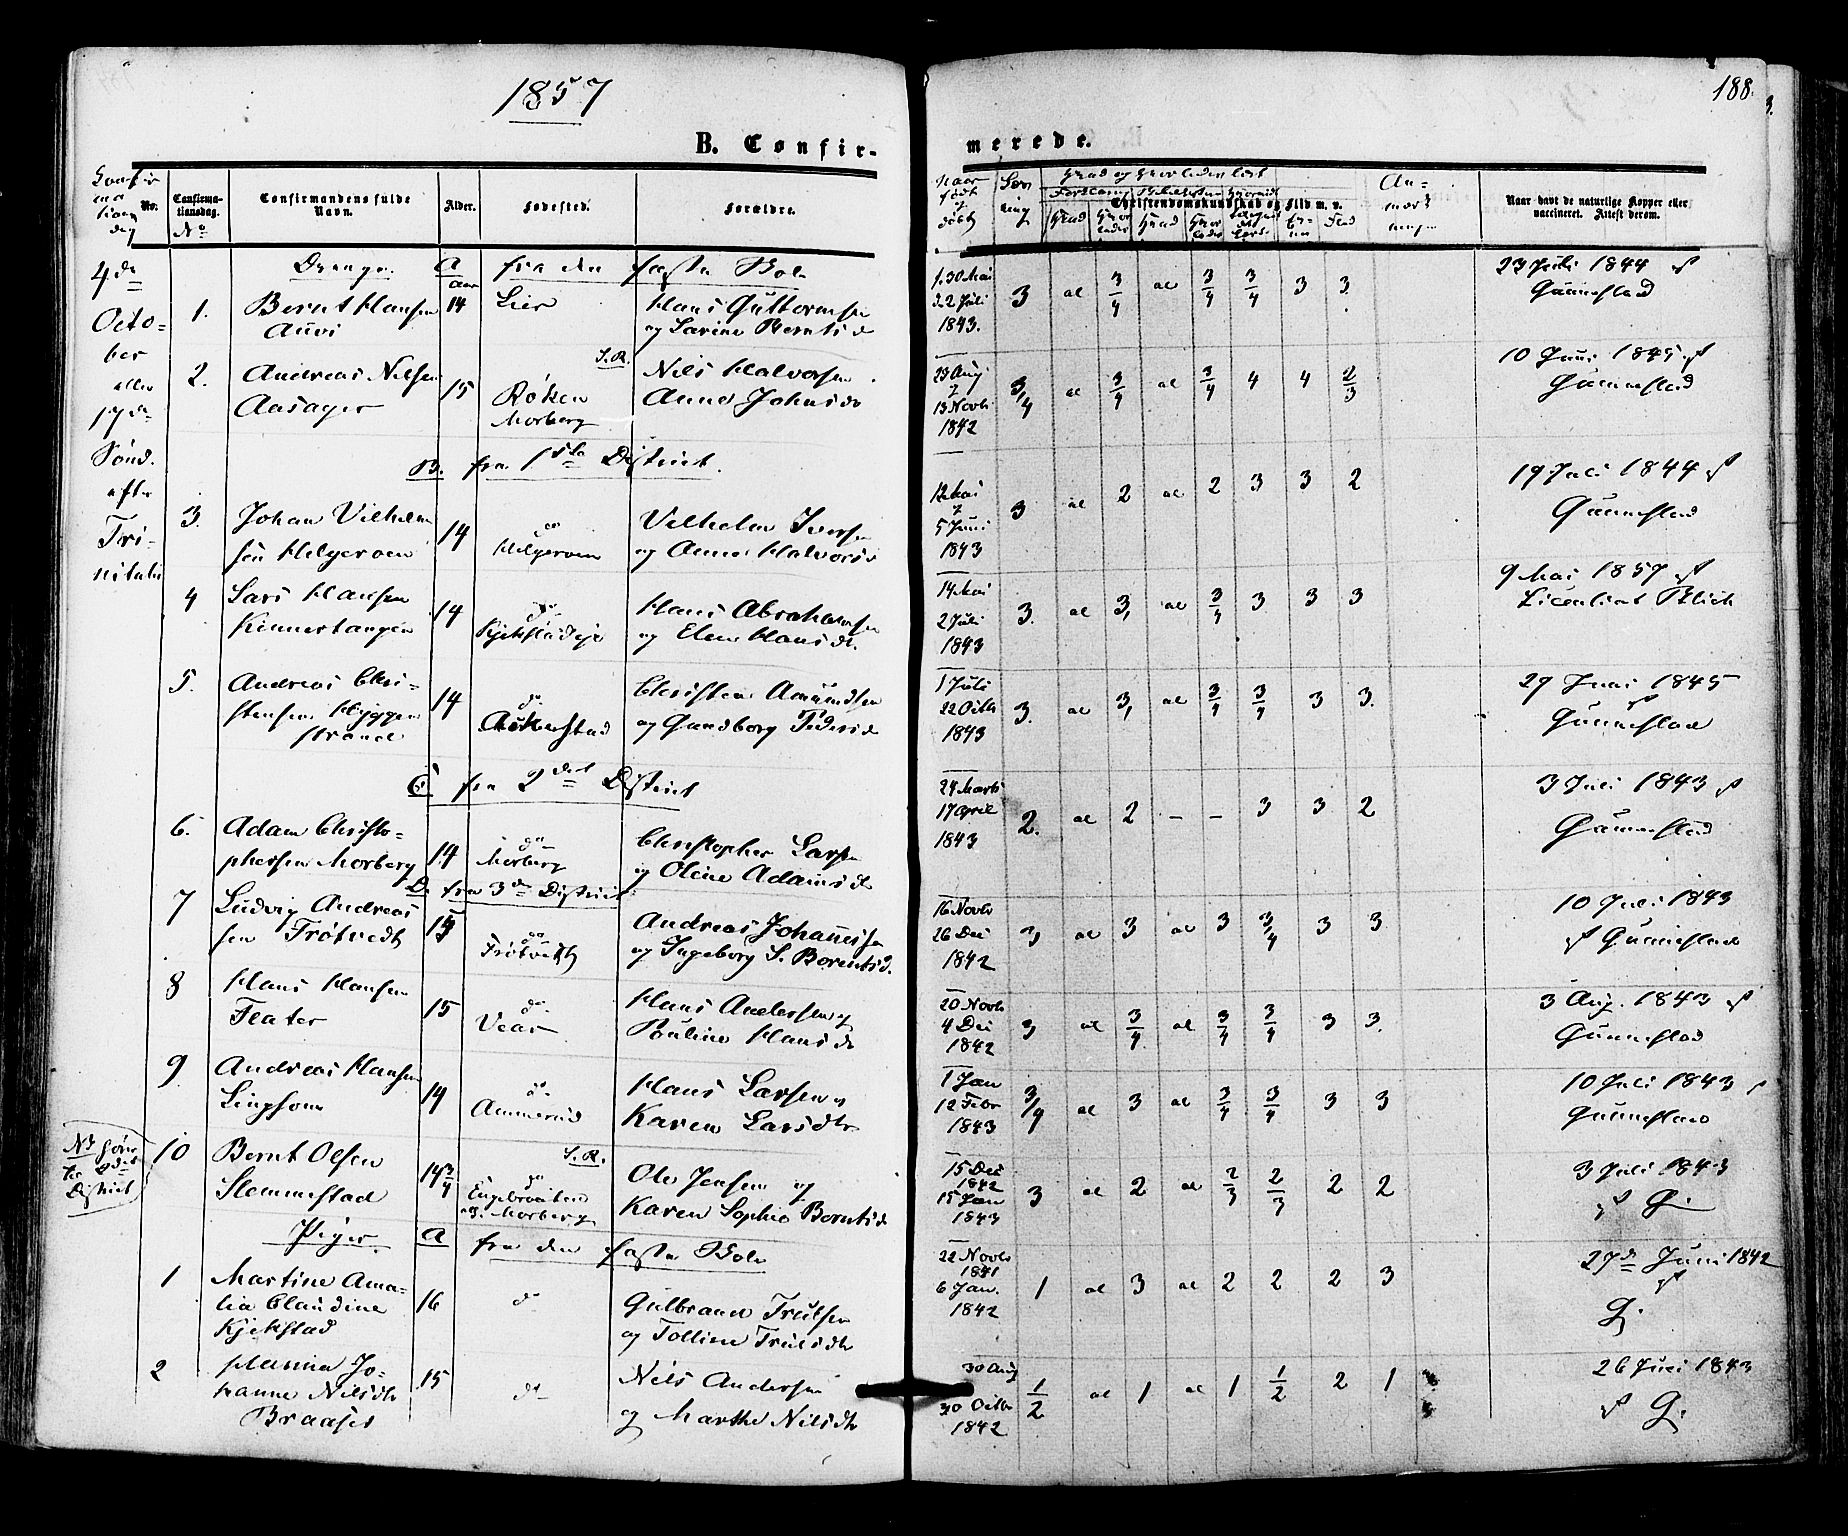 1857
188.
B. Confir-
merede.
No.
Confirma-
tionsdag.
No
Confirmandens fulde
Navn.
Alder.
Fødested.
Forældre.
Naar
født
og
døbt
Christendomskundskab og Flid m. v.
An-
mærk
Naar havt de naturlige Kopper eller
vaccineret. Attest derom.
4de
Octo-
ber
eller
17de
Sønd.
efter
Tri-
nitatis
Drenge. A fra den faste Skole
1. Bernt Hansen 14 Lier Hans Guttormsen
Auvi og Larine Berntsd
f. 30 Mai
d. 2 Juli
1843.
3 al 3/4 al 3/4 3/4 3 3.
23 Juli 1844 af
Gunnestad
2. Andreas Nilsen 15 S.R. Nils Halvorsen
Aasager Røken Anne Johnsd
Morberg
29 Aug
13 Novb
1842
3/4 al 3/4 al 3/4 4 4 2/3
10 Juni 1845 af
Gunnestad
B. fra 1ste District.
3. Johan Vilhelm 14 do Vilhelm Iversen
sen Helgeroen Helgeroen og Anne Halvorsd
12 Mai
5 Juni
1843
3 al 2 al 2 3 3 2
19 Juli 1844 af
Gunnestad
4 Lars Hansen 14 do Hans Abrahamsen
Kinnestangen Kjekstadeje og Elen Hansdt.
14 Mai
2 Juli
1843
3. al 3, al 3/4 3 3 3
9 Mai 1857 af
Licentiat Blich
5. Andreas Chri- 14 do Christen Amundsen
stensen Hyggen og Gundborg Pedersd
strand
1 Juli
22 Octb
1843
3. al 3, al 3/4 3/4 3 3.
27 Juni 1845
af
Gunnestad
C fra 2det District
6. Adam Christo- 14 do Christopher Larsen
phersen Morberg Morberg og Oline Adamsd
24 Marts
17 April
1843
2. al 2 - - 3 3 2
3 Juli 1843 af
Gunnestad
D. fra 3de District
7 Ludvig Andreas 15 do Andreas Johannessen
sen Trøtvedt Trøtvedt og Ingeborg S. Borentsd.
16 Novb
26 Dec
1842
3 al 3 al 3 3/4 3 3
10 Juli 1843
af Gunnestad
8 Hans Hansen 15 do Hans Andersen og
Flater Vear Pauline Hansd
20 Novb
4 Dec
1842
3 al 3/4 al 3/4 3/4 3 3.
3 Aug. 1843 af
Gunnestad
9 Andreas Hansen 14 do Hans Larsen og
Lingsom Ammerud Karen Larsdtr
1 Jan
12 Febr
1843
3/4 al 3 al 3/4 3/4 3 3
10 Juli 1843 af
Gunnestad
NB hører
til 2det
District
10 Bernt Olsen 14 3/4 S.R. Ole Jensen og
Slemmestad do Karen Sophie Berntsd
Engebraaten
Morberg
15 Dec
1842
15 Jan
1843
3 al 2 al 2/3 2/3 2 2
3 Juli 1843
af G.
Piger. A fra den faste Skole
1 Martine Ama- 16 do Gulbrand Trulsen
lia Claudine og Tolline Trulsdtr
Kjekstad
22 Novb
1841
6 Jan.
1842
1 al 3 al 2 2 2 3
27de Juni 1842
af
G.
2 Hanna Jo- 15 do Nils Andersen
hanne Nilsdtr og Marthe Nilsdtr
Braaset
30 Aug
30 Octb
1842
1/2 al 1 al 1 1/2 2 1
26 Juli 1843
af G.